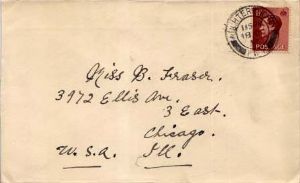 Miss B. Fraser.
3972 Ellis Ave.
3 East.
Chicago.
U.S.A. Ill.
POSTAGE